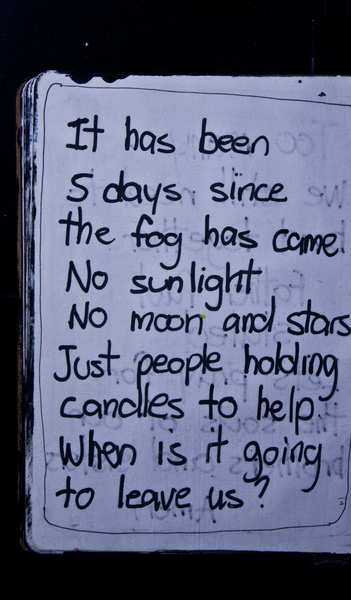 It has been
5 days since
the fog has came.
No sunlight
No moon and stars
Just people holding
candles to help.
When is it going
to leave us?